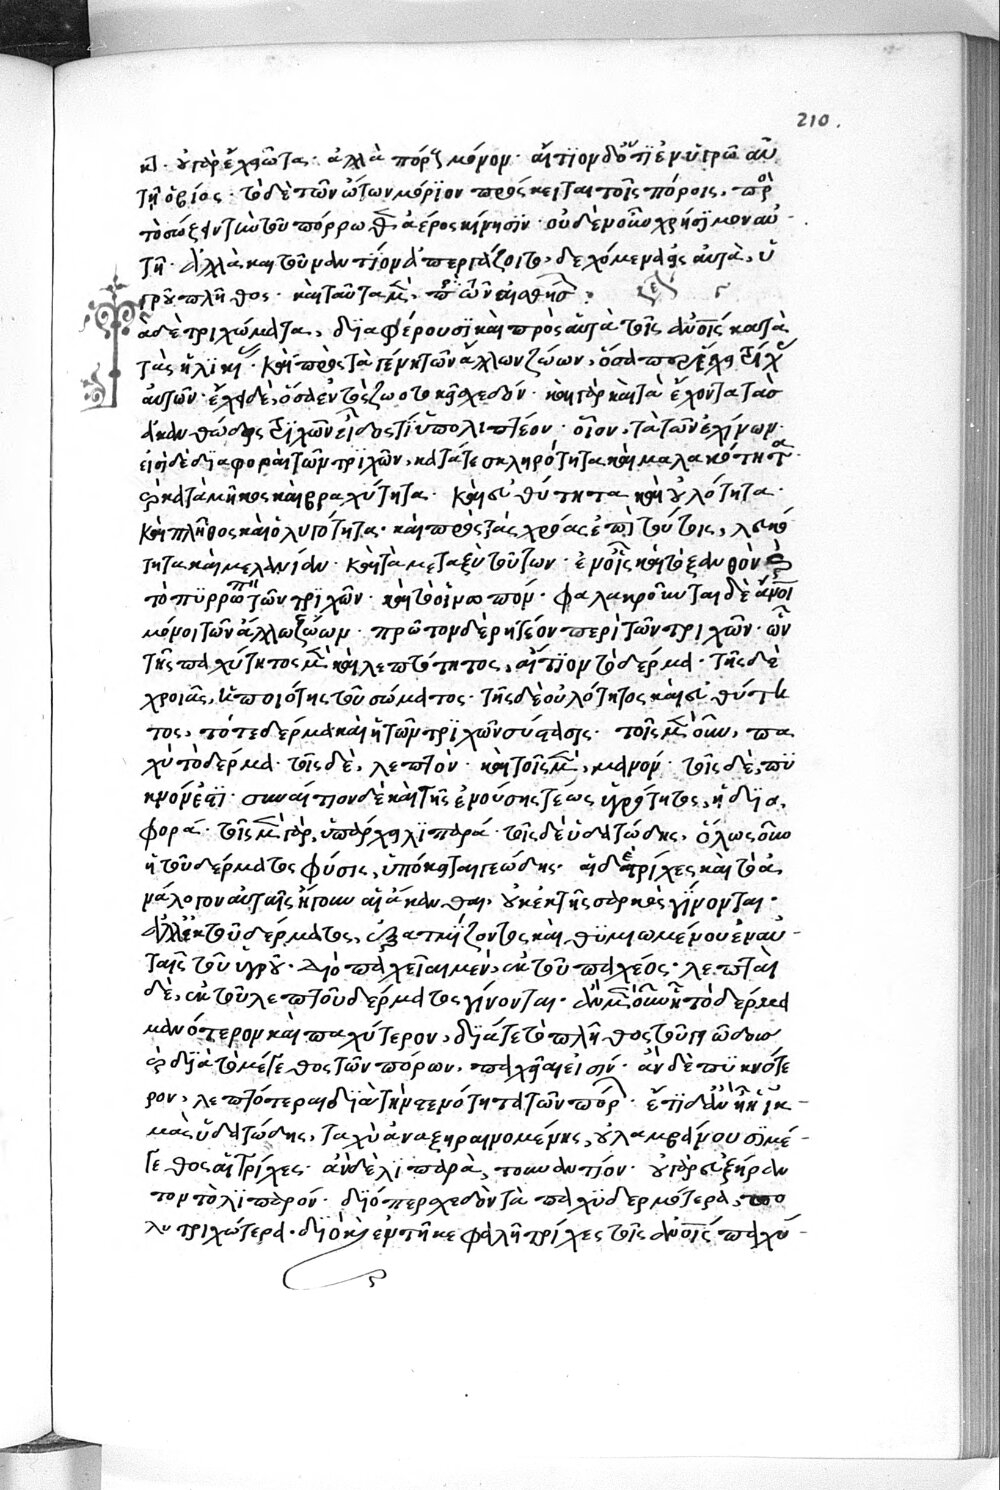 210.
κή· οὐ γὰρ ἔχει ὦτα· ἀλλὰ πόρους μόνον· αἴτιον δ᾽ ὅτι ἐν ὑγρῷ αὐ
τῇ ὁ βίος· τὸ δὲ τῶν ὤτων μόριον πρόσκειται τοῖς πόροις, πρὸς
τὸ σώζειν τὴν τοῦ πόρρωθεν ἀέρος κίνησιν· οὐδὲν οὖν χρήσιμον αὐ-
τῇ· ἀλλὰ καὶ τοὐναντίον ἀπεργάζοιτο, δεχόμενα εἰς αὐτὰ, ὑ
γροῦ πλῆθος· καὶ ταῦτα μὲν, περὶ
ὰ δὲ τριχώματα, διαφέρουσι καὶ πρὸς αὐτὰ τοῖς ἀνοις κατὰ
τὰς ἡλικίας· καὶ πρὸς τὰ γένη τῶν ἄλλων ζώων, ὅσα περ ἔχει τρίχας
αὐτῶν· ἔχει δὲ, ὅσα ἐντὸς ζωοτοκεῖ σχεδόν· καὶ γὰρ καὶ τὰ ἔχοντα τὰσ
ἀκανθώδεις τριχῶν εἶδός τι ὑποληπτέον· οἷον, τὰ τῶν ἐχίνων·
εἰσὶ δὲ διαφοραὶ τῶν τριχῶν, κατά τε σκληρότητα καὶ μαλακότητα·
καὶ κατὰ μῆκος καὶ βραχύτητα· καὶ εὐθύτητα καὶ οὐλότητα·
καὶ πλῆθος καὶ ὀλιγότητα· καὶ πρὸς τὰς χρόας ἐπὶ τούτοις, λευκό
τητα καὶ μελανίαν· καὶ τὰ μεταξὺ τούτων· ἐν οἷς καὶ τὸ ξανθὸν καὶ
τὸ πυρρωπὸν τῶν τριχῶν· καὶ τὸ οἰνωπόν· φαλακροῦνται δὲ ἄνοι
μόνοι τῶν ἄλλων ζώων· πρῶτον δὲ ῥητέον περὶ τῶν τριχῶν· ὧν
τῆς παχύτητος μὲν καὶ λεπτότητος, αἴτιον τὸ δέρμα· τῆς δὲ
χροιᾶς, ἡ ποιότης τοῦ σώματος· τῆς δὲ οὐλότητος καὶ εὐθύτη
τος, τό τε δέρμα καὶ ἡ τῶν τριχῶν σύστασις· τοῖς μὲν οὖν, πα
χὺ τὸ δέρμα· τοῖς δὲ, λεπτόν· καὶ τοῖς μὲν, μανόν· τοῖς δὲ, πυ
κνόν ἐστι· συναίτιον δὲ καὶ τῆς ἐνούσης τέως ὑγρότητος, ἡ δια
φορά· τοῖς μὲν γὰρ, ὑπάρχει λιπαρά· τοῖς δὲ ὑδατώδης, ὅλως οὖν
ἡ τοῦ δέρματος φύσις, ὑπόκειται γεώδης· αἱ δὲ τρίχες καὶ τὸ ἀ
νάλογον αὐταῖς ἤγουν αἱ ἄκανθαι, οὐκ ἐκ τῆς σαρκὸς γίνονται·
ἀλλ᾽ ἐκ τοῦ δέρματος, ἐξατμίζοντος καὶ θυμιωμένου ἐν αὐ-
ταῖς τοῦ ὑγροῦ· διὸ παχεῖαι μὲν, ἐκ τοῦ παχέος· λεπταὶ
δὲ, ἐκ τοῦ λεπτοῦ δέρματος γίνονται· ἂν μὲν οὖν ᾖ τὸ δέρμα
μανότερον καὶ παχύτερον, διά τε τὸ πλῆθος τοῦ γεώδους
καὶ διὰ τὸ μέγεθος τῶν πόρων, παχεῖαι εἰσίν· ἂν δὲ πυκνότε
ρον, λεπτότεραι διὰ τὴν στενότητα τῶν πόρων· ἔτι δ᾽ ἂν ᾖ ἡ ἰκ-
μὰς ὑδατώδης, ταχὺ ἀναξηραινομένης, οὐ λαμβάνουσι μέ-
γεθος αἱ τρίχες· ἂν δὲ λιπαρὰ, τοὐναντίον· οὐ γὰρ εὐξήραν
τον τὸ λιπαρόν· διόπερ σχεδὸν τὰ παχυδερμότερα, πο
λυτριχώτερα· διὸ καὶ ἐν τῇ κεφαλῇ τρίχες τοῖς ἀνοις παχύ-